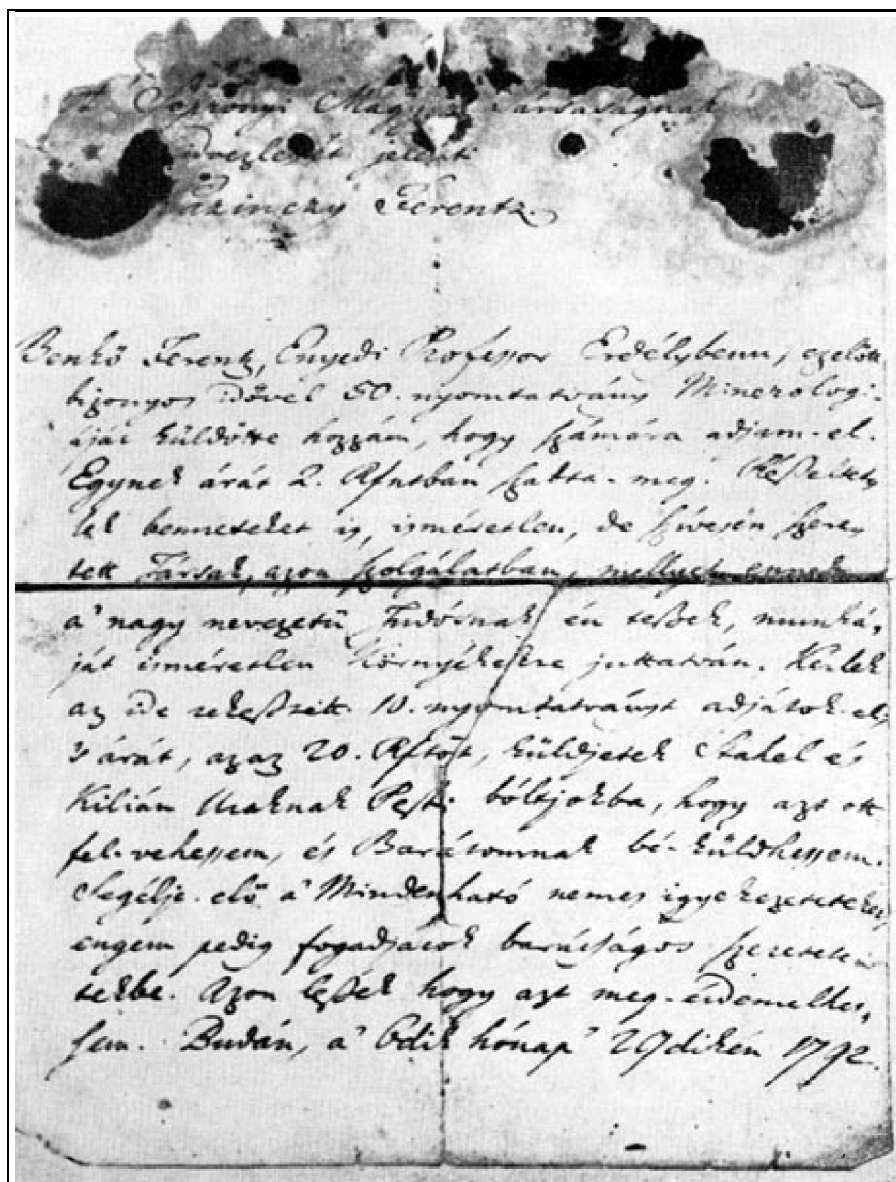 A' Sopronyi Magyar Társaságnak
üdvezletét jelenti
Kazinczy Ferentz.
Benkő Ferentz, Enyedi Professor Erdélybenn, ezelőtt
bizonyos idővel 50. nyomtatvány Minerologi-
áját küldötte hozzám, hogy számára adjam-el.
Egynek árát 2. Rftban szabta-meg. Részeltet-
lek benneteket is, isméretlen, de szívesén szere-
tett Társak, azon szolgálatban, mellyet ennek
a' nagy nevezetű Tudósnak én teszek, munká-
ját isméretlen környékekre juttatván. Kérlek
az ide rekesztett 10. nyomtatványt adjátok-el,
's árát, azaz 20. Rftot, küldjétek Stahel és
Kilián Uraknak Pesti bóltjokba, hogy azt ott
fel-vehessem, és Barátomnak bé-küldhessem.
Segélje-elő a' Mindenható nemes igyekezeteteket,
engem pedig fogadjatok barátságos szeretete-
tekbe. Azon leszek hogy azt meg-érdemelhes-
sem. Budán, a' 6dik hónap' 29dikén 1792.